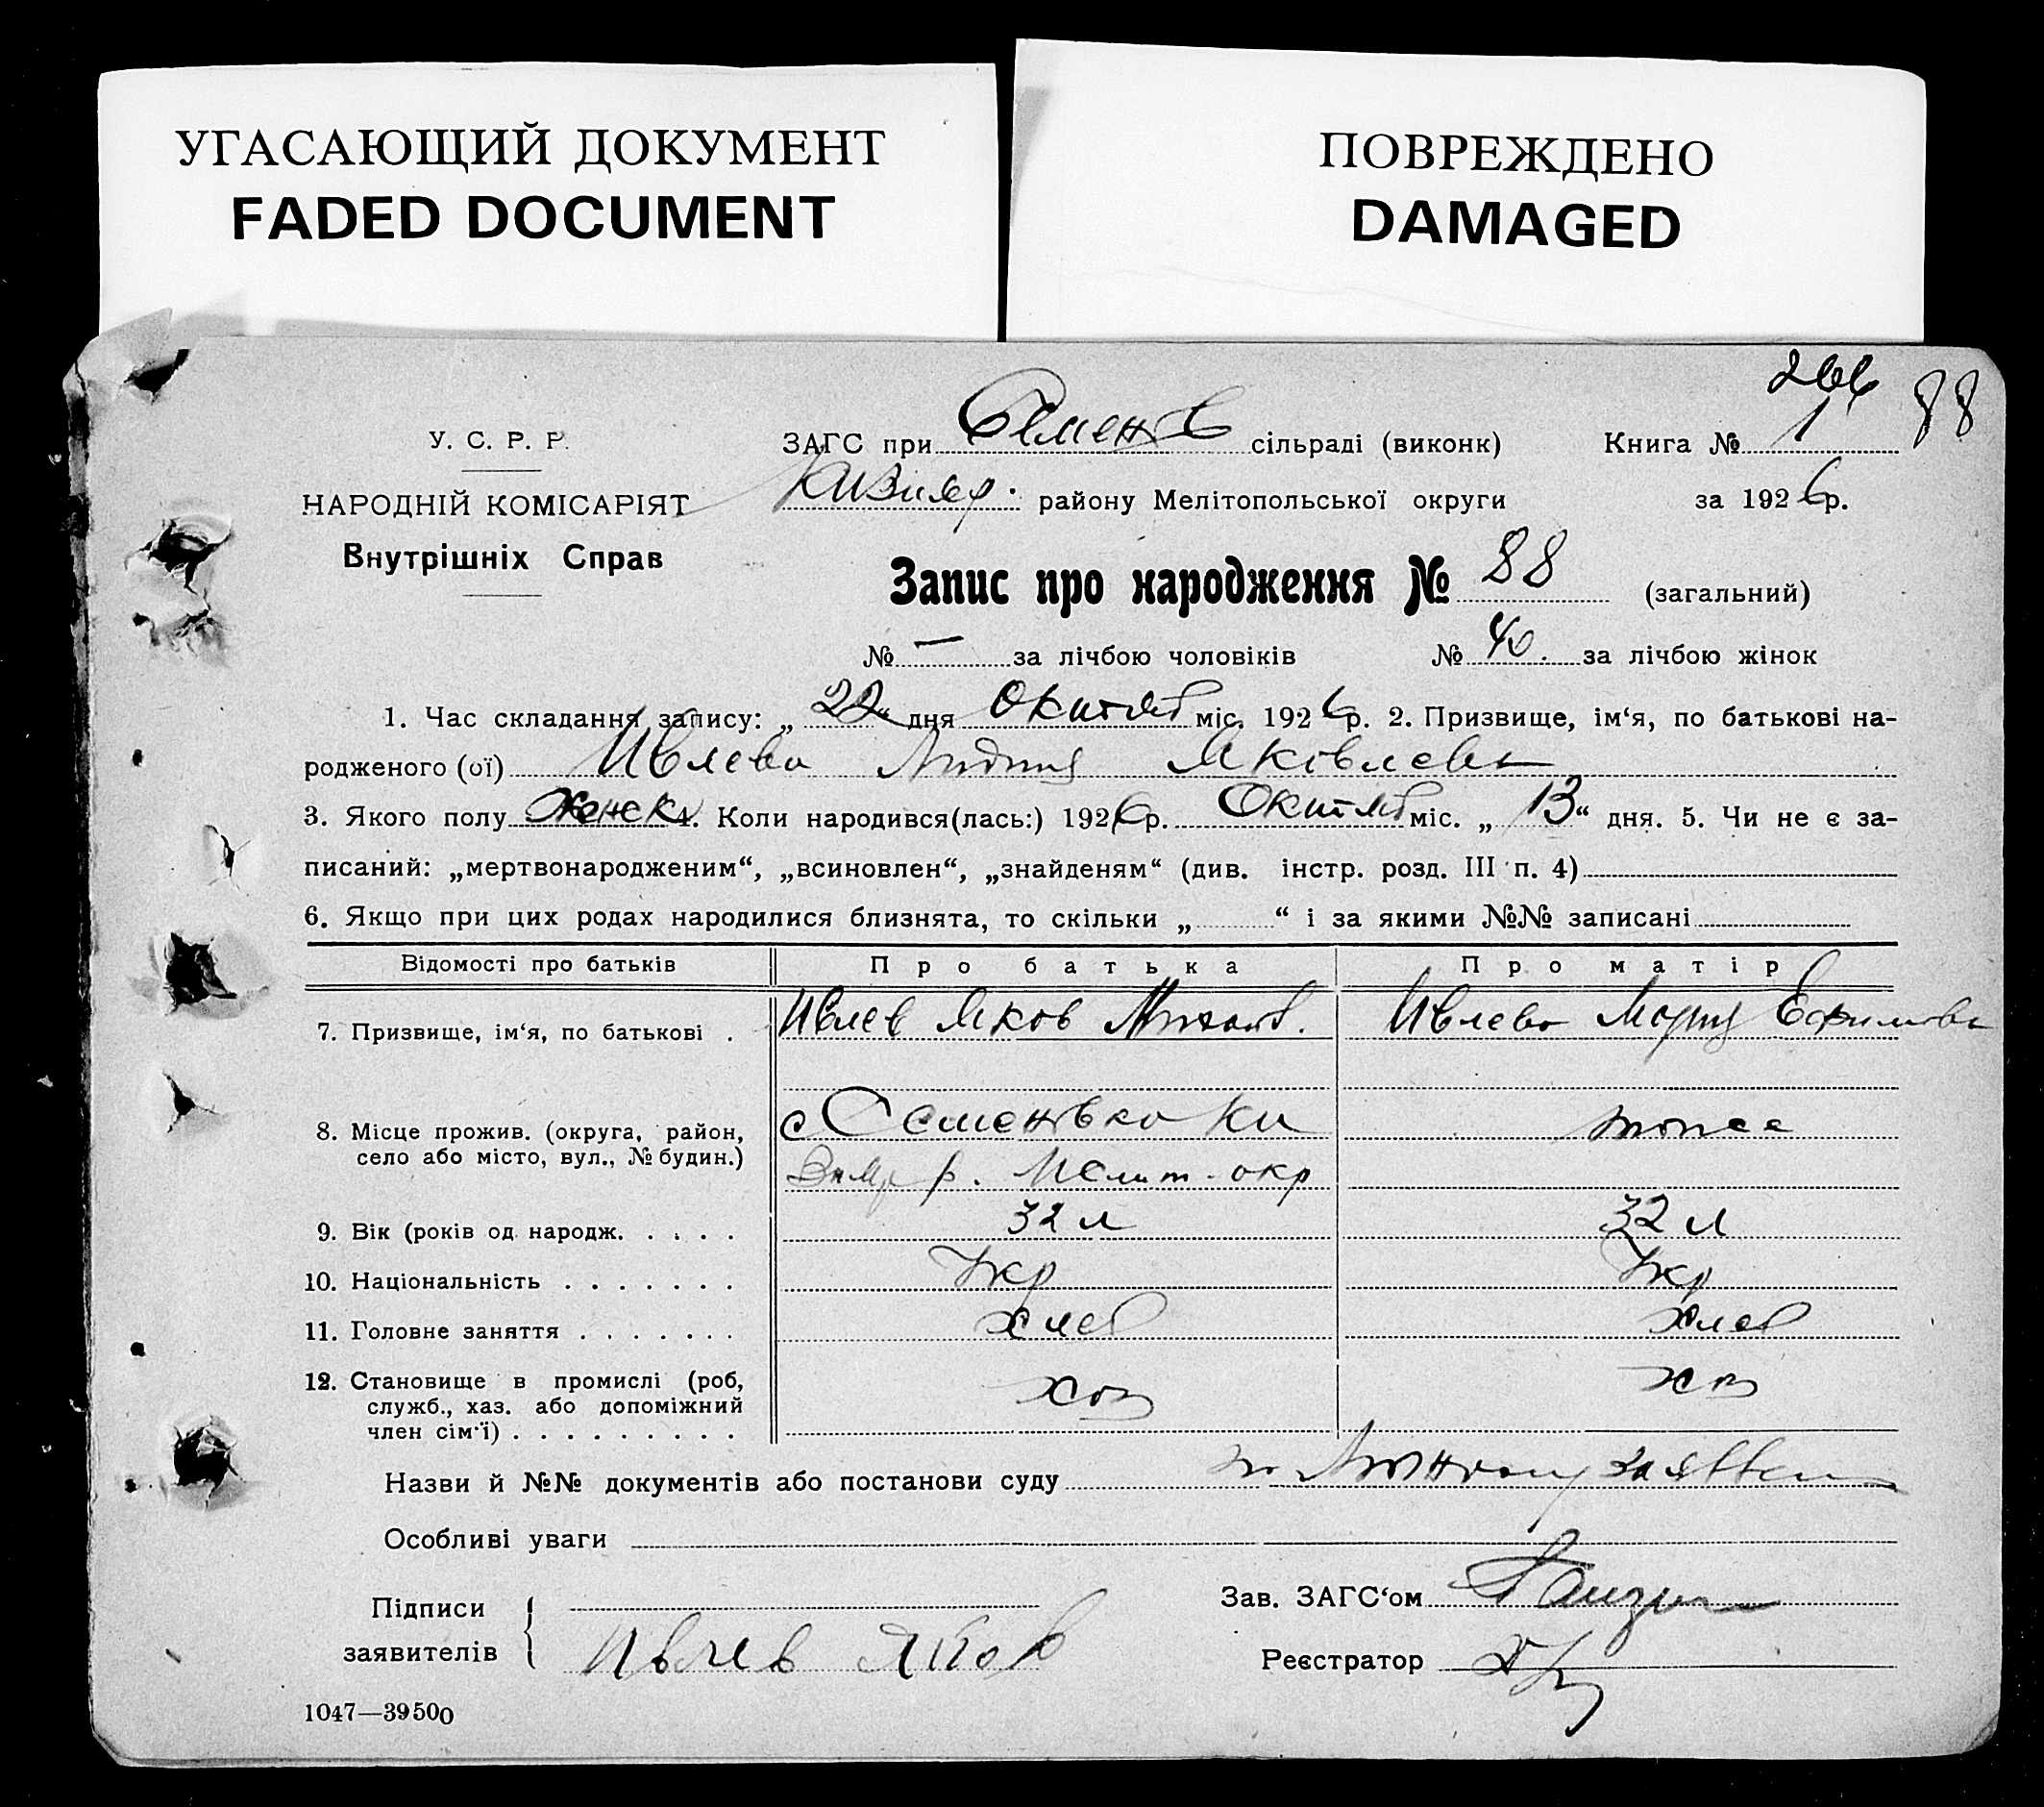 УГАСАЮЩИЙ ДОКУМЕНТ
FADED DOCUMENT
ПОВРЕЖДЕНО
DAMAGED
266
88
У. С. Р. Р.
НАРОДНІЙ КОМІСАРІЯТ
Внутрішніх Справ
ЗАГС при Семенов сільраді (виконк) Книга № 1
Кизияр. району Мелітопольської округи за 1926р.
Запис про народження № 88 (загальний)
№ — за лічбою чоловіків № 40. за лічбою жінок
1. Час складання запису: „22“ дня Октяб міс. 1926р. 2. Призвище, ім‘я, по батькові на-
родженого (ої) Ивлева Лидия Яковлевна
3. Якого полу женск 4. Коли народився(лась:) 1926р. Октяб міс. „13“ дня. 5. Чи не є за-
писаний: „мертвонародженим“, „всиновлен“, „знайденям“ (див. інстр. розд. III п. 4)
6. Якщо при цих родах народилися близнята, то скільки „ “ і за якими №№ записані
Відомості про батьків Про батька Про матір
7. Призвище, ім‘я, по батькові . Ивлев Яков Ивлева Мария Ефимовна
8. Місце прожив. (округа, район, село або місто, вул., № будин.) с Семеновка Ки
р. Мелит. окр
тоже
9. Вік (років од народж. . . . . 32 л 32 л
10. Національність . . . . . . . Укр Укр
11. Головне заняття . . . . . . . хлеб хлеб
12. Становище в промислі (роб,
служб., хаз. або допоміжний
член сім‘ї) . . . . . . . . . хоз хоз
Назви й №№ документів або постанови суду по личному заявлен
Особливі уваги
Підписи
заявителів Ивлев Яков
Зав. ЗАГС‘ом
Реєстратор
1047—39500